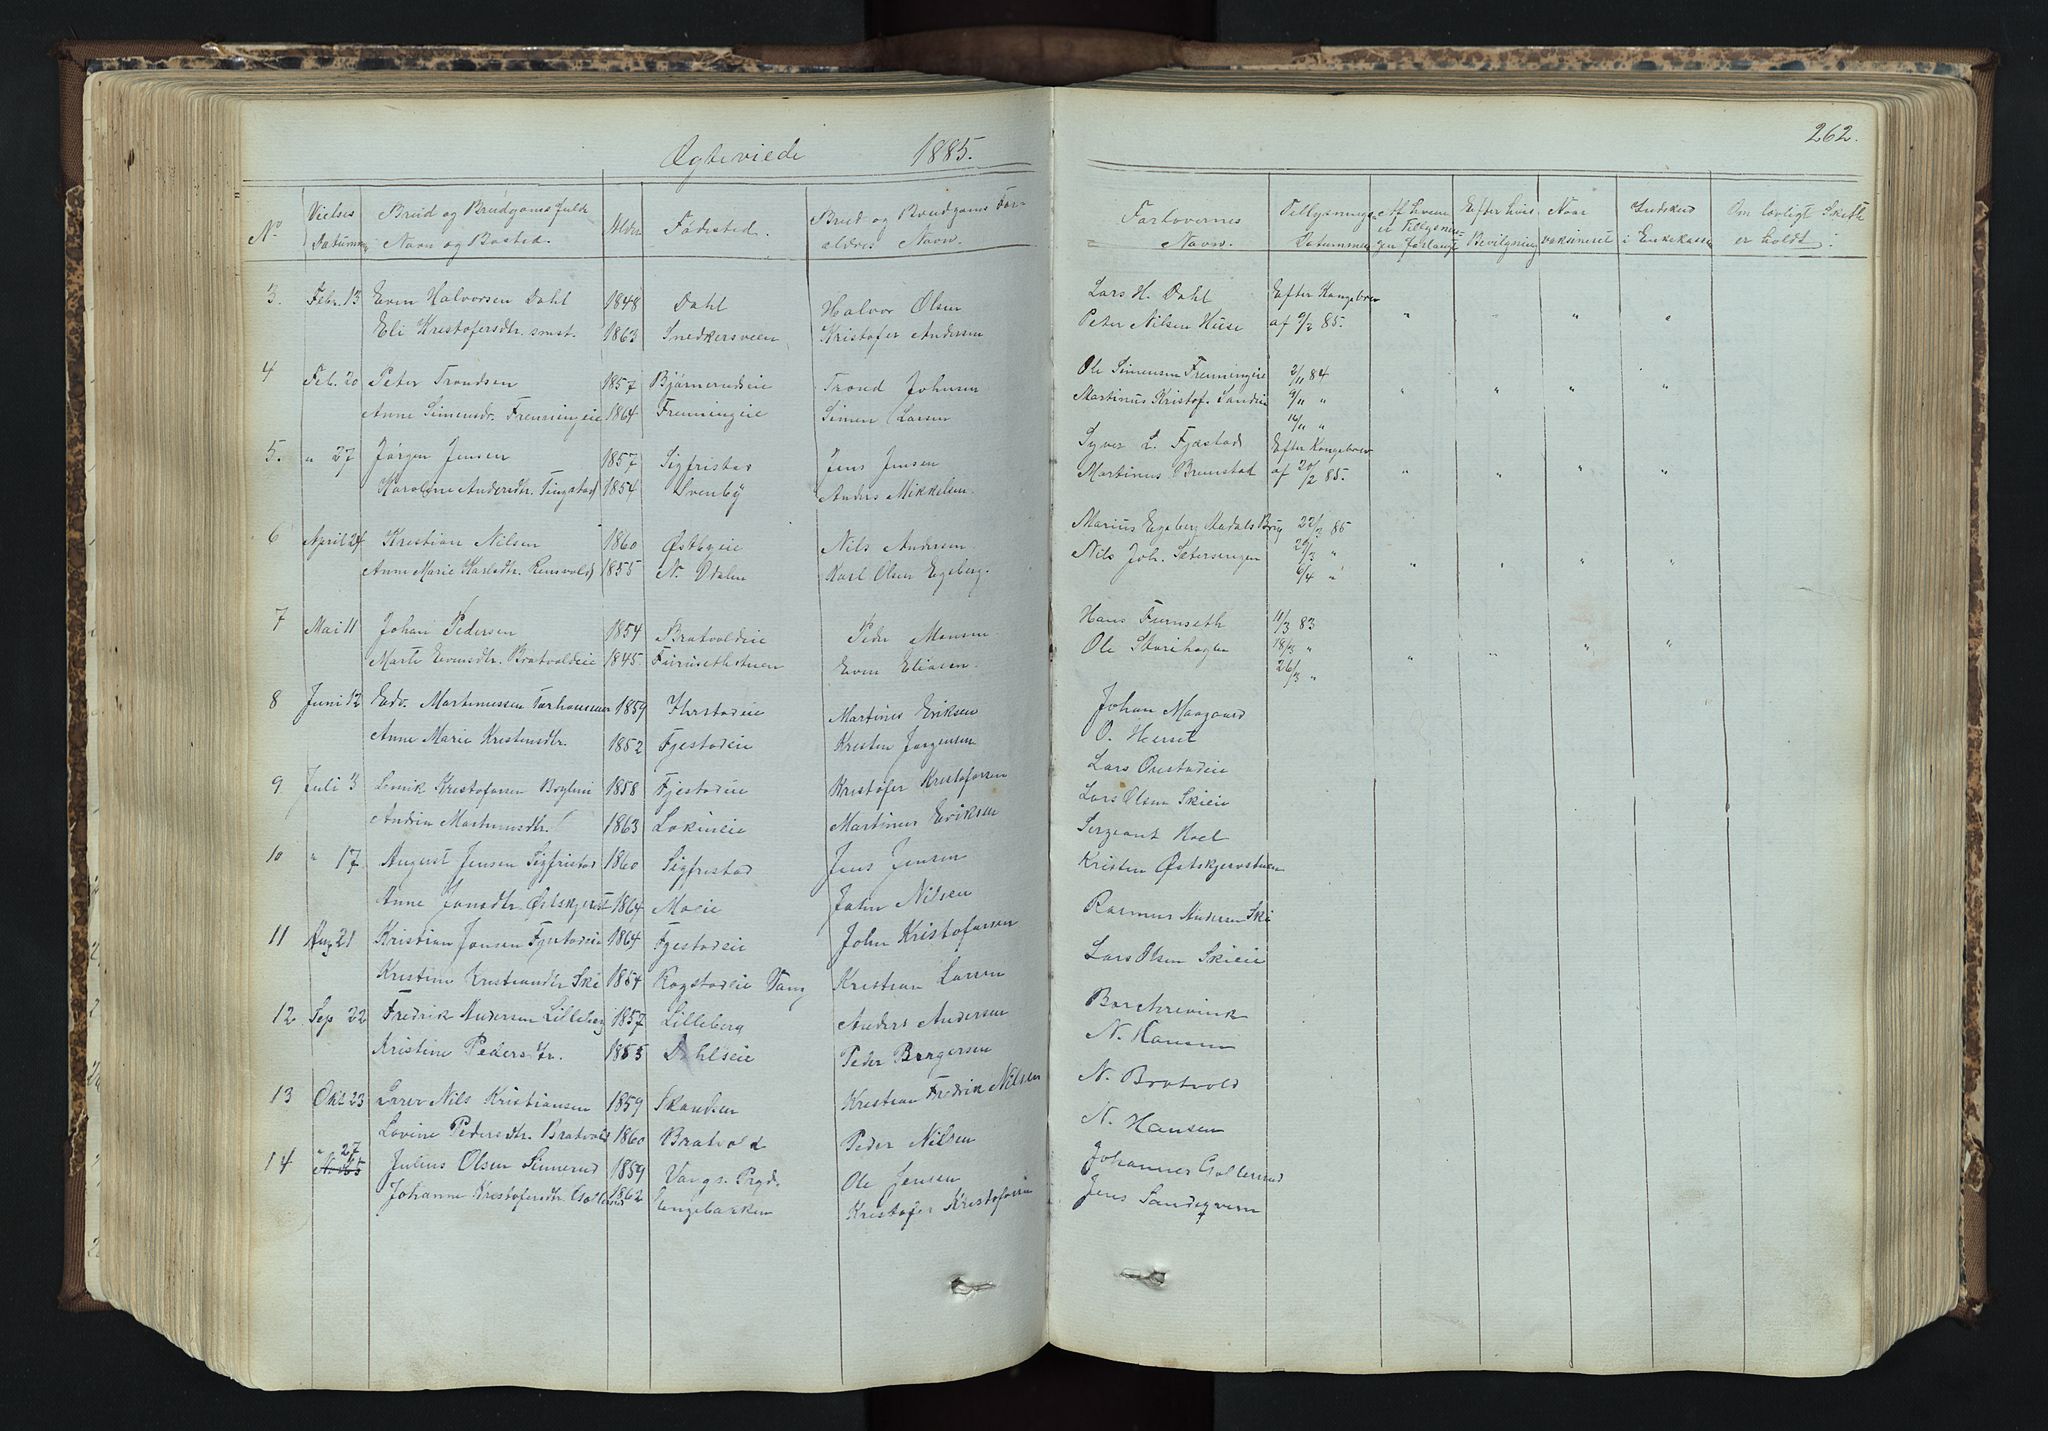 Ægteviede 1885.
262.
No
Vielses Datumen
Brud og Brudgoms fulde Navn og Bosted.
Alder
Fødested.
Brud og Brudgoms Forældres Navn.
Forlovernes Navn.
Tillysnings Datummen
Af hvem er Tillysningen forlangt
Efter hvis Bevilgning
Naar vaksineret
Indskud i Enkekassen
Om lovligt Skifte er holdt.
3. Febr. 13 Even Halvorsen Dahl 1848 Dahl Halvor Olsen Lars H. Dahl Efter Kongebrev
Eli Kristofersdtr. smst. 1863 Snedkersveen Kristofer Andersen Peter Nilsen Huse af 9/2 85. " " " "
4 Feb. 20 Peter Trondsen 1857 Bjørnerudeie Trond Johnsen Ole Simensen Frenningeie 2/11 84
Anne Simensdr. Frenningeie 1864 Frenningeie Simen Larsen Martinus Kristof. Sandeie 9/11 " " " " "
16/11 "
5. " 27 Jørgen Jensen 1857 Sigfristad Jens Jensen Syver L. Fjæstad Efter Kongebrev
Karoline Andersdtr. Tingstad 1854 Svenby Anders Mikkelsen. Martinus Brunstad af 20/2 85. " " " "
6 April 24 Kristian Nilsen 1860 Østbyeie Nils Andersen Marius Egeberg Aadals Brug 22/3 85
Anne Marie Karlsdtr. Rensvold 1855 N. Odalen Karl Olsen Egeberg. Nils Joh. Sætersengen 29/3 " " " " "
6/4 "
7 Mai 11 Johan Pedersen 1854 Bratvoldeie Peder Monsen Hans Furuseth 11/3 83
Marte Evensdtr. Bratvoldeie 1845. Furusethstuen Even Eliasen. Ole Storihagen 18/3 " " " " "
26/3 "
8 Juni 12 Edv. Martinussen 1859 Martines Eriksen Johan Maagaard
Anne Marie Kristensdtr. 1852 Fjestadeie Kristen Jørgensen O. Herset
9 Juli 3 Kristofersen 1858 Fjestadeie Kristofer Kristofersen Lars Ovestadeie
Andrea Martinusdtr. 1863 Løkineie Martinus Eriksen Lars Olsen Skieie
10 " 17 August Jensen Sigfristad 1860 Sigfristad Jens Jensen Sergeant Hoel
Anne Jonsdtr. Østskjerst 1864 Moeie John Nilsen Kristen Østskjervstuen
11 Aug 21 Kristian Jonsen Fjestadeie 1864 Fjestadeie John Kristofersen Rasmus Andersen Ski
Kristine Kristiansdtr Ski 1854 Kogstadeie Vang Kristian Larsen Lars Olsen Skieie
12 Sep 22 Fredrik Andersen Lilleberg 1857 Lilleberg Anders Andersen
Kristine Pedersdtr. 1855 Dahlseie Peder Bergersen N. Hansen
13 Okt. 23 Nils Kristiansen 1859 Skanden Kristian Fredrik Nilsen N. Bratvold
Lovine Pedersdtr. Bratvold 1860 Bratvold Peder Nilsen N. Hansen
14 " 27 Julius Olsen Sinnerud 1859 Vangs Prgd. Ole Jensen Johannes Gollerud
Johanne Kristofersdtr Gollerud 1862 Engebakken Kristofer Kristofersen Jens Sandsgveen